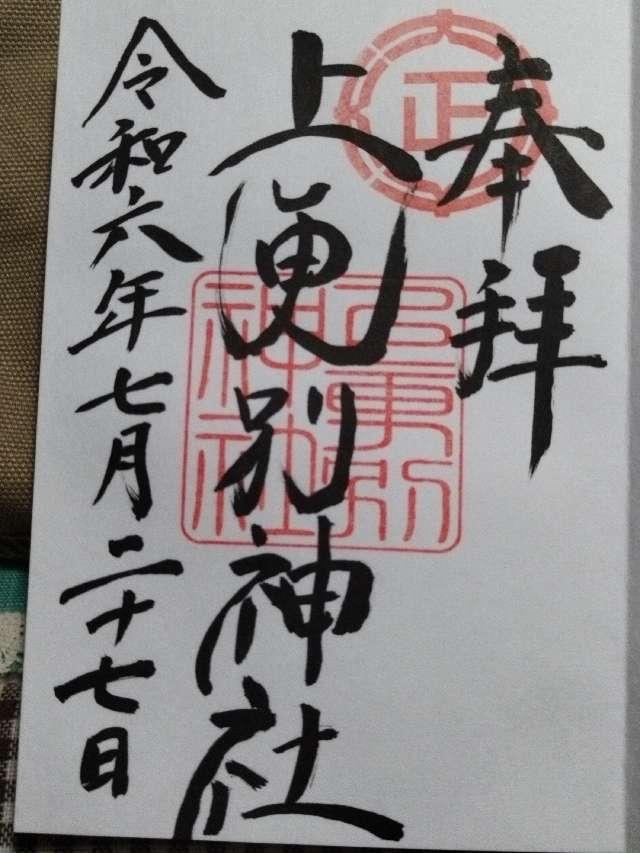 奉拝
上更別神社
令和六年七月二十七日
上更別
神社